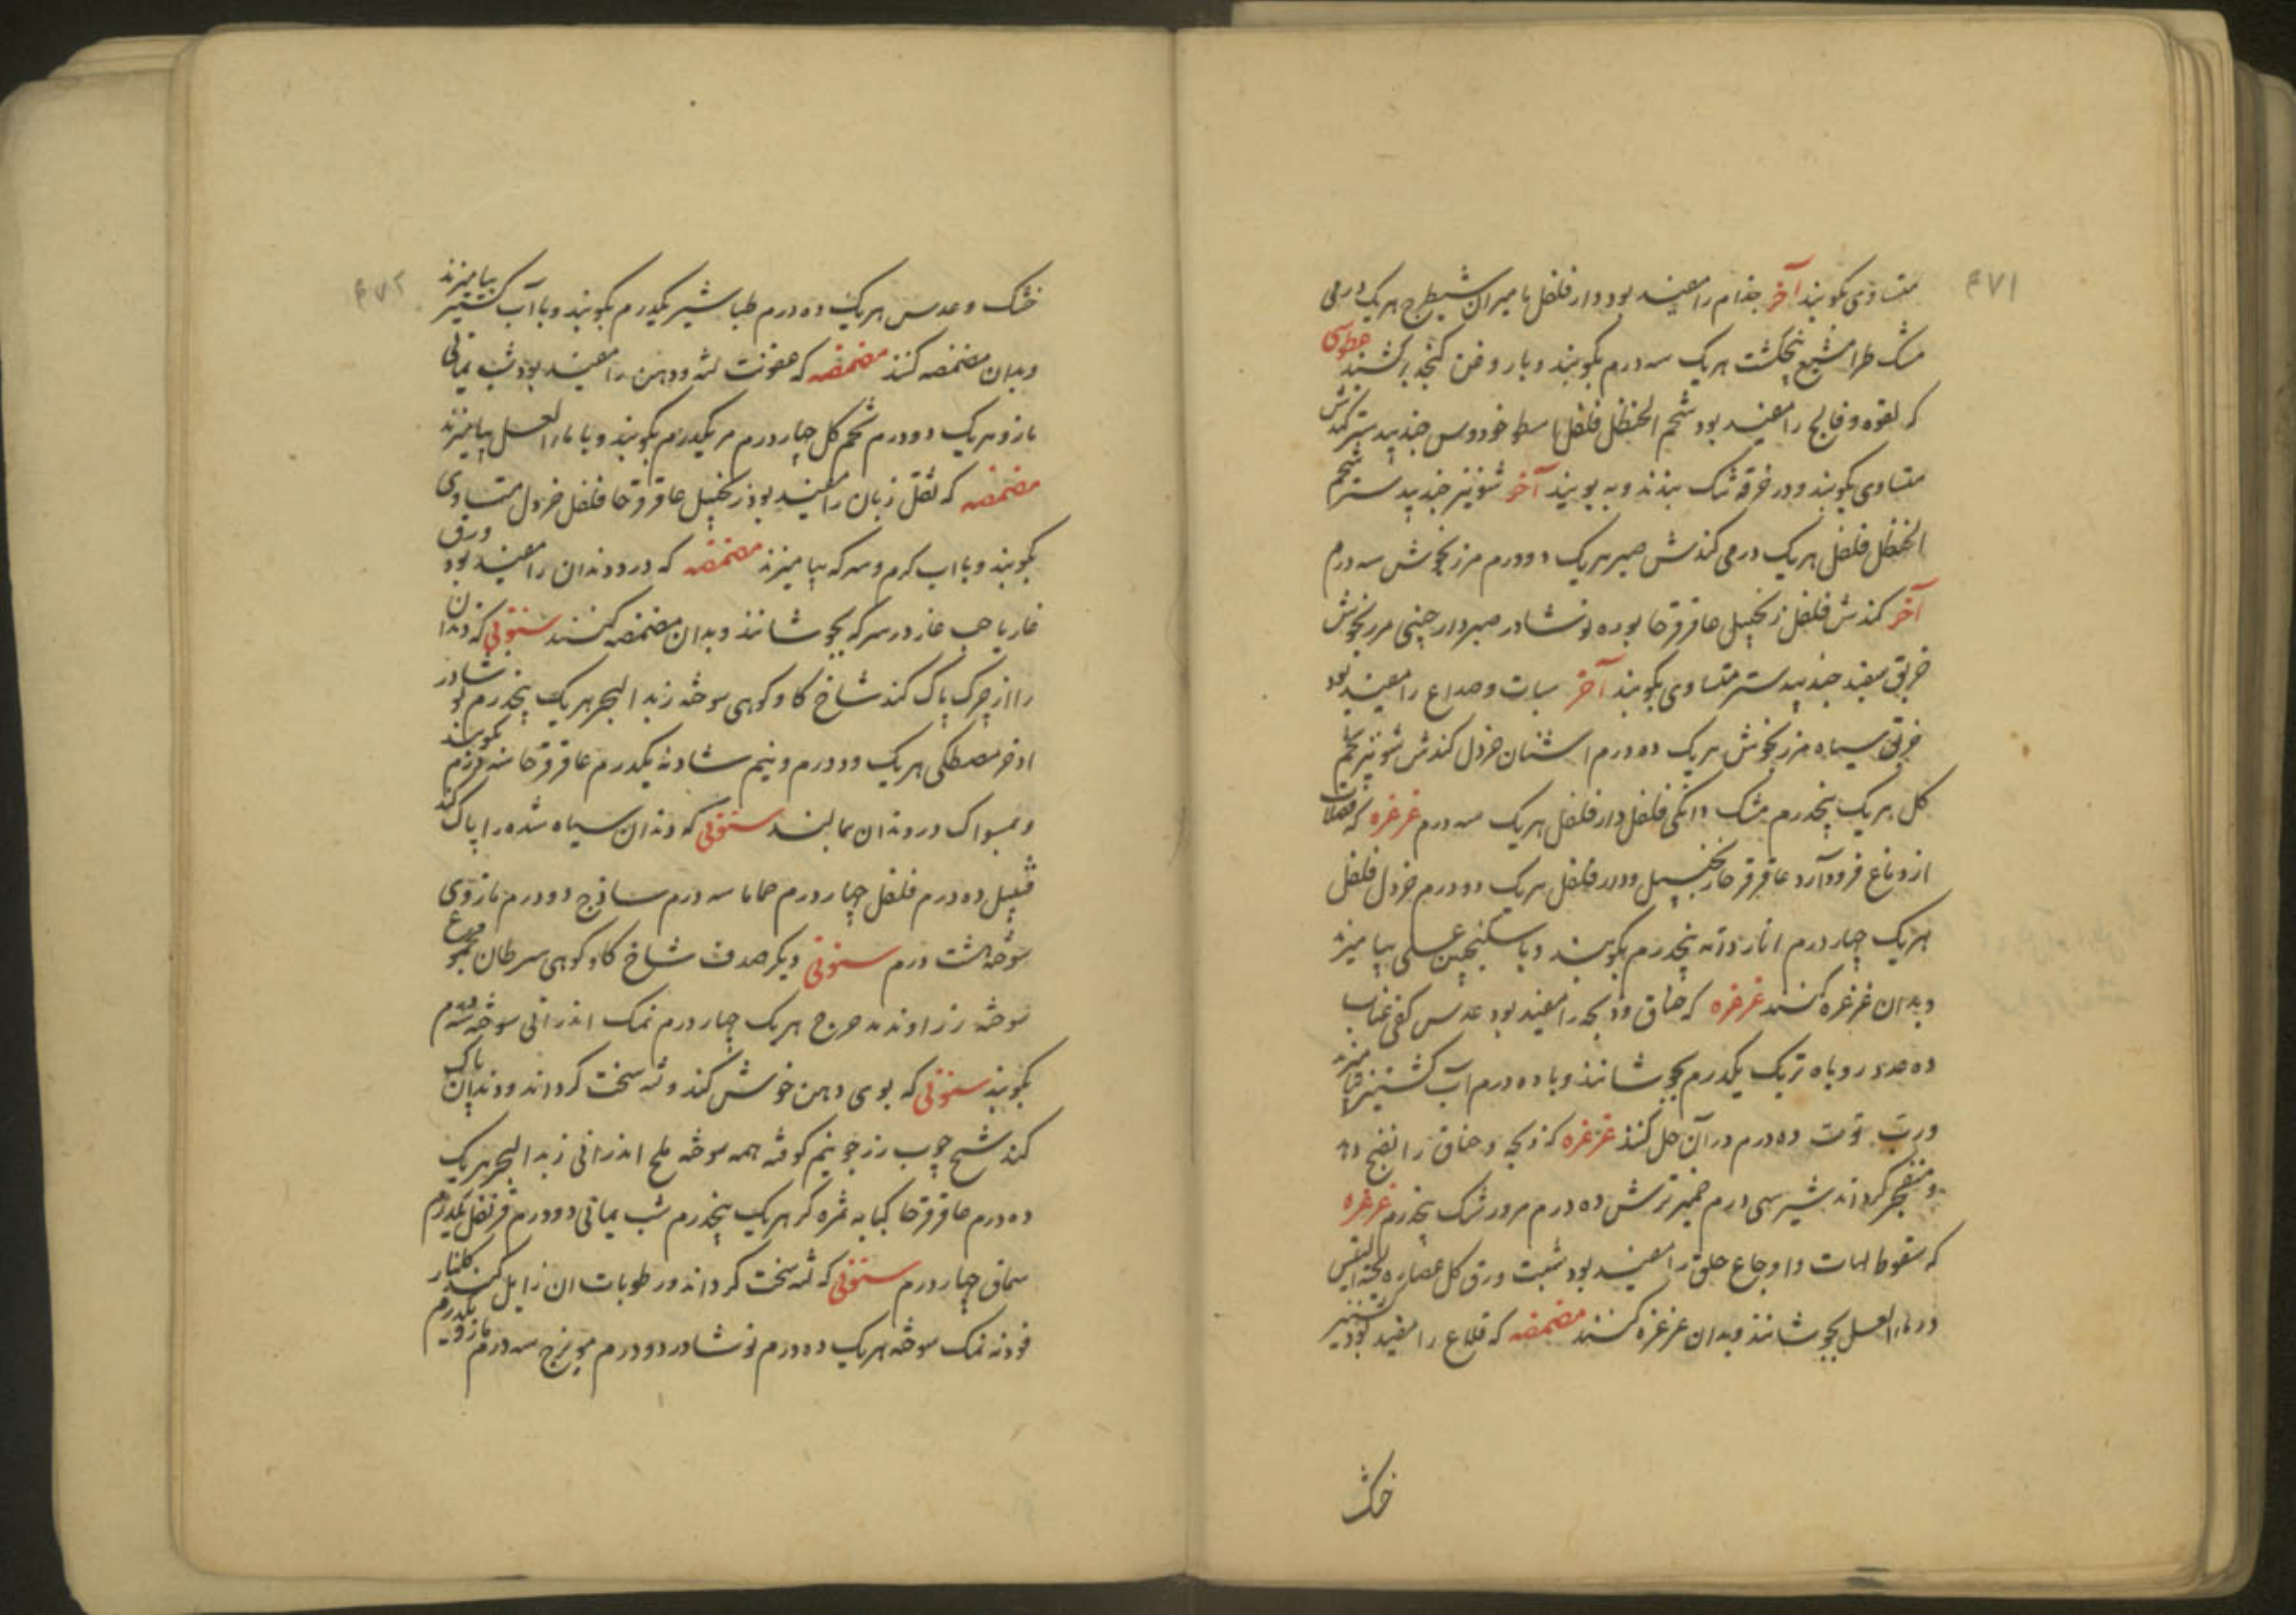 ۴۷۱
متساوی بکوبند آخر جذام را مفید بود دار فلفل مامیران شیطرج هریک درمی
مشک طرامشیع پنجنگشت هریک سه درم بکوبند و با روغن کنجد بکشند عطوسی
که لقوه و فالج را مفید بود شحم الحنظل فلفل اسطوخودوس جندبیدستر کندش
متساوی بکوبند و در خرقه تنک بندند و به بویند آخر شونیز جندبیدستر شحم
الحنظل فلفل هریک درمی کندش صبر هریک دو درم مرزنجوش سه درم
آخر کندش فلفل زنجبیل عاقرقرحا بوره نوشادر صبر دارچینی مرزنجوش
خربق سفید جندبیدستر متساوی بکوبند آخر سبات و صداع را مفید بود
خربق سیاه مرزنجوش هریک ده درم اشنان خردل کندش شونیز تخم
کل هریک پنجدرم مشک دانکی فلفل دار فلفل هریک سه درم غرغره که فضلات
از دماغ فرود آرد عاقرقرحا زنجبیل دار فلفل هریک دو درم خردل فلفل
هریک چهار درم انار دانه پنجدرم بکوبند و با سکنجبین عسلی بیامیزند
و بدان غرغره کنند غرغره که خناق و ذبحه را مفید بود عدس کفی عناب
ده عدد روباه تربک یکدرم بجوشانند و با ده درم آب کشنیز بیامیزند
و رب توت ده درم در آن حل کنند غرغره که ذبحه و خناق را نضج دهد
و منفجر کرداند شیر سی درم خمیر ترش ده درم مرورشک پنجدرم غرغره
که سقوط لهات و اوجاع حلق را مفید بود شبت ورق کل عصاره لحیة التیس
در ماء العسل بجوشانند و بدان غرغره کنند مضمضه که قلاع را مفید بود کشنیز
خشک
۴۷۲
خشک و عدس هریک ده درم طباشیر یکدرم بکوبند و با آب کشنیز بیامیزند
و بدان مضمضه کنند مضمضه که عفونت لثه و دهن را مفید بود شب یمانی
مازو هریک دو درم تخم کل چهار درم مر یکدرم بکوبند و با ماء العسل بیامیزند
مضمضه که ثقل زبان را مفید بود زنجبیل عاقرقرحا فلفل خردل متساوی
بکوبند و با اب کرم و سرکه بیامیزند مضمضه که درد دندان را مفید بود ورق
غار یا حب غار در سرکه بجوشانند و بدان مضمضه کنند سنونی که دندان
را از چرک پاک کند شاخ کاو کوهی سوخته زبد البحر هریک پنجدرم نوشادر
اذخر مصطکی هریک دو درم و نیم شادنه یکدرم عاقرقرحا سه درم بکوبند
و بمسواک در دندان بمالند سنونی که دندان سیاه شده را پاک کند
قنبیل ده درم فلفل چهار درم حماما سه درم ساذج دو درم مازوی
سوخته هشت درم سنونی دیکر صدف شاخ کاو کوهی سرطان مجموع
سوخته زراوند مدحرج هریک چهار درم نمک اندرانی سوخته سه درم
بکوبند سنونی که بوی دهن خوش کند و لثه سخت کرداند و دندان پاک
کند شیح چوب رز جو نیم کوفته همه سوخته ملح اندرانی زبد البحر هریک
ده درم عاقرقرحا کبابه ثمره کز هریک پنجدرم شب یمانی دو درم قرنفل یکدرم
سماق چهار درم سنونی که لثه سخت کرداند و رطوبات ان زایل کند کلنار
فودنه نمک سوخته هریک ده درم نوشادر دو درم مویزج سه درم مازو یکدرم